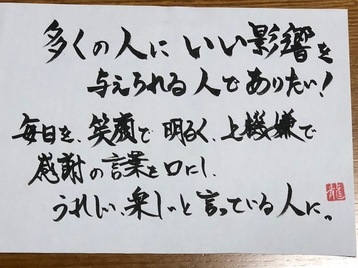 多くの人に いい影響を
与えられる人でありたい!
毎日を、笑顔で 明るく、上機嫌で
感謝の言葉を口にし、
うれしい、楽しいと言っている人に。
龍